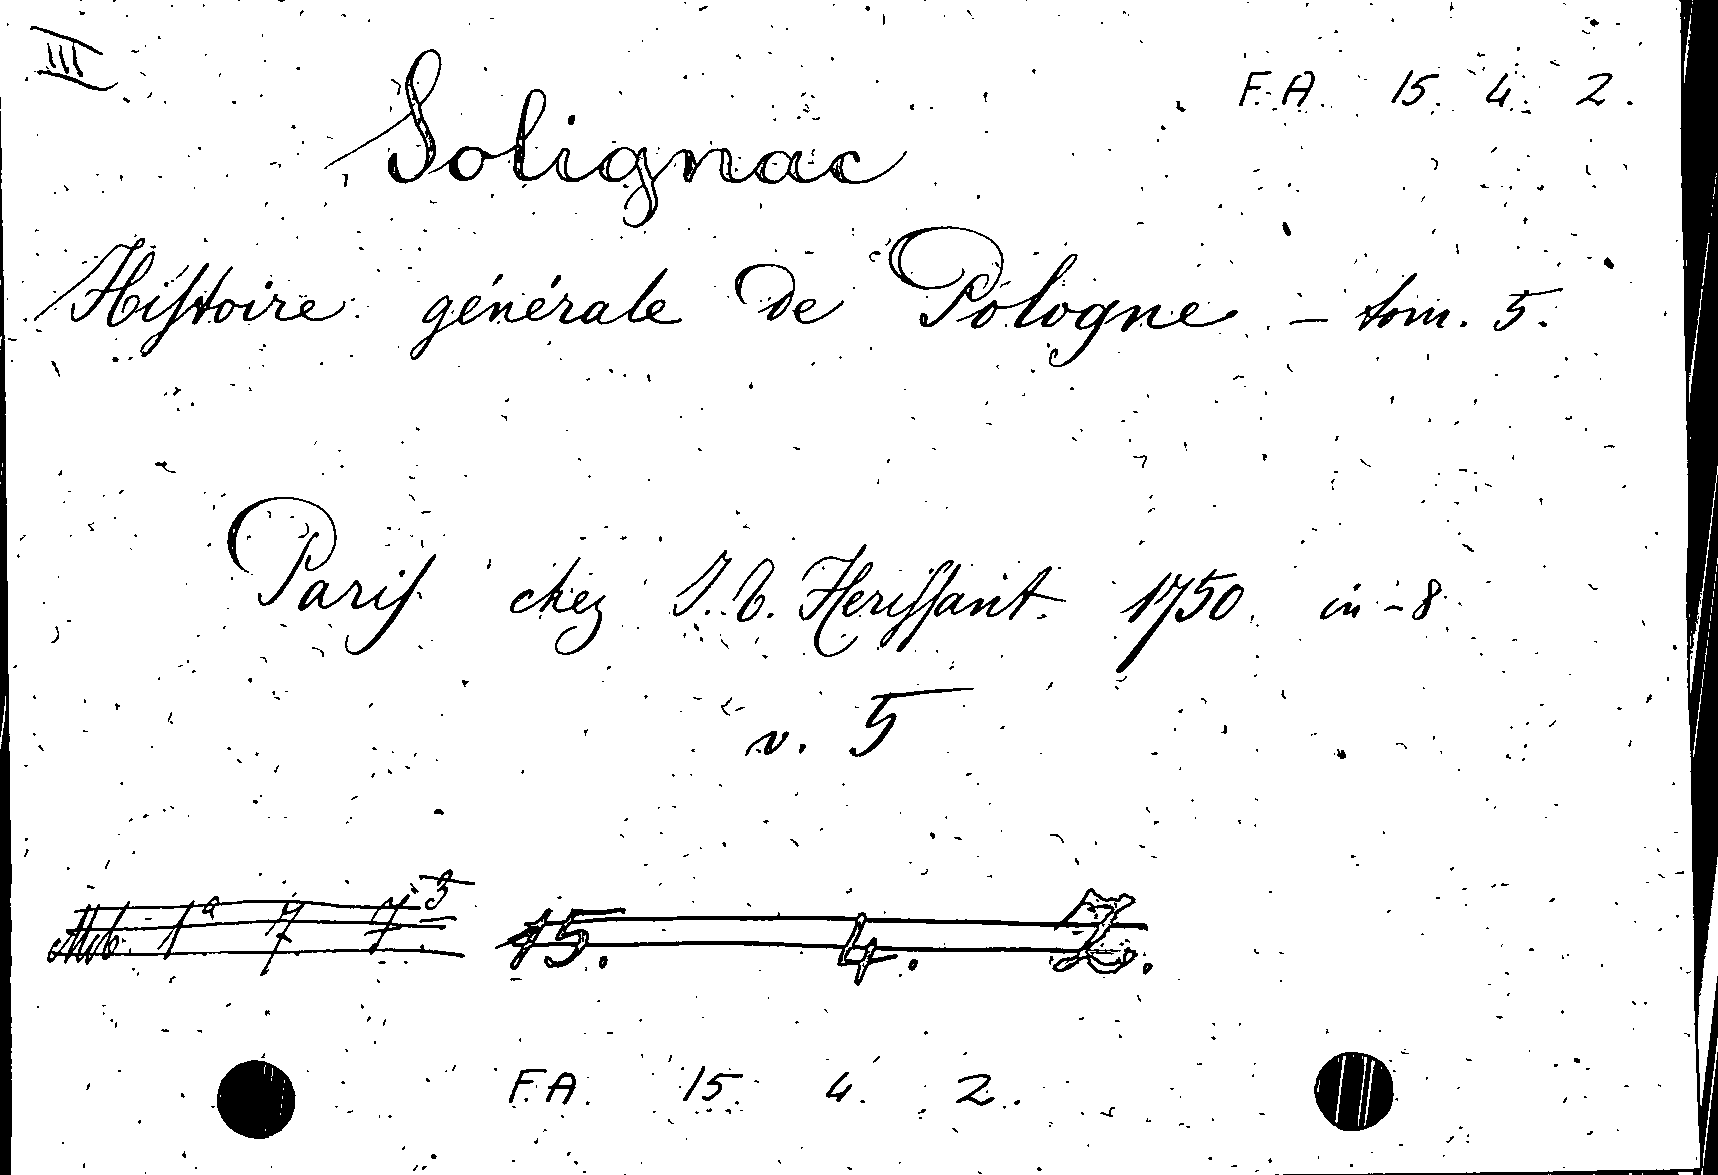 III
F.A. 15. 4. 2.
Solignac
Histoire générale de Pologne - tom. 5.
Paris chez J. T. Herissant. 1750. in-8.
v. 5
1ª 7 7.3 15. 4. 2.
F.A. 15. 4. 2.